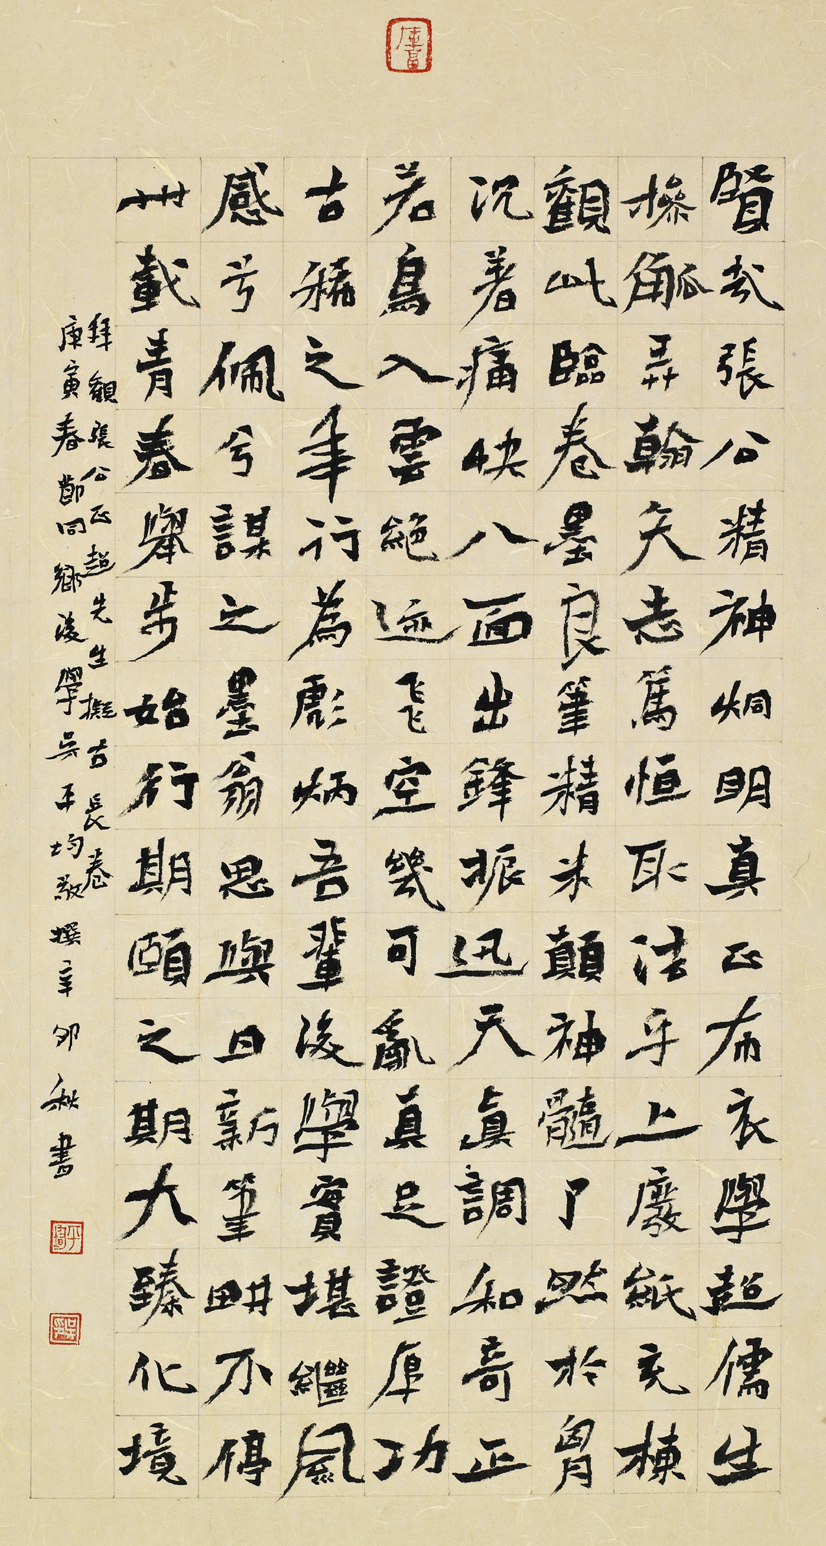 賢哉張公精神炯明真正布衣學超儒生
操觚弄翰矢志篤恒取法乎上廢紙充棟
觀此臨卷墨良筆精米顛神髓了然於胷
沉著痛快八面出鋒振迅天真調和奇正
若鳥入雲絕迹飞空幾可亂真足證厚功
古稀之年行為彪炳吾輩後學實堪繼風
感兮佩兮謀之墨翁思與日新筆畊不停
卅載青春舉步始行期頤之期大臻化境
拜觀張公正超先生擬古長卷
庚寅春節同鄉後學吳平均敬撰辛卯秋書